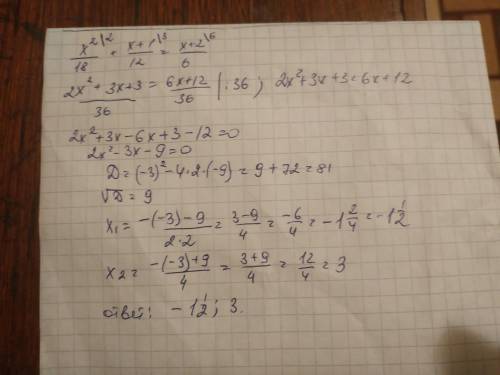 x²\2/18 + x+1\3/12 = x+2\6/6
2x²+3x+3/36 = 6x+12/36 |·36; 2x²+3x+3=6x+12
2x²+3x-6x+3-12=0
2x²-3x-9=0
D=(-3)²-4·2·(-9)=9+72=81
√D=9
x₁=-(-3)-9/2·2=3-9/4=-6/4=-1 2/4=-1 1/2
x₂=-(-3)+9/4=3+9/4=12/4=3
ответ: -1 1/2; 3.